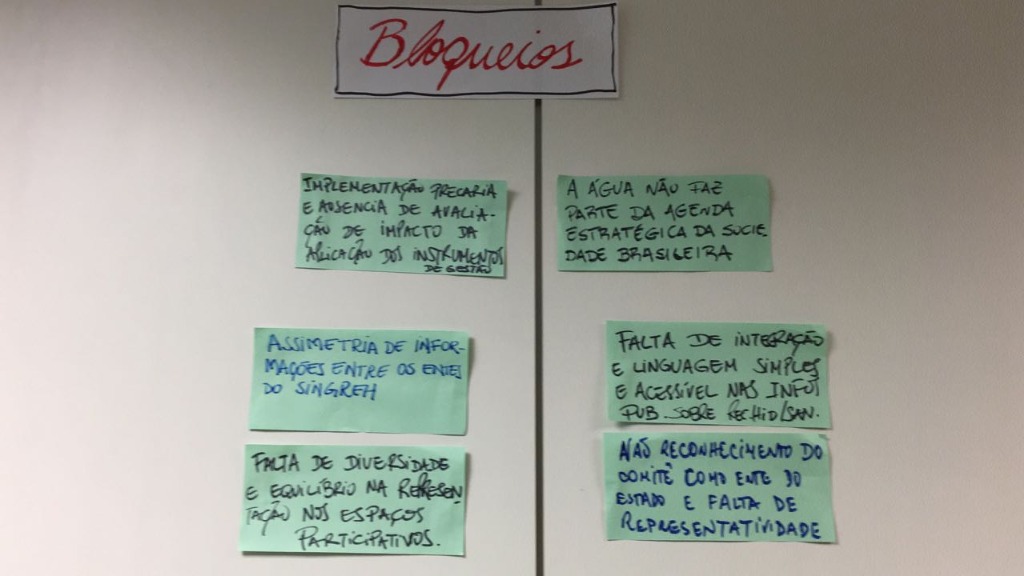 Bloqueios
IMPLEMENTAÇÃO PRECARIA
E AUSENCIA DE AVALIA-
ÇÃO DE IMPACTO DA
APLICAÇÃO DOS INSTRUMENTOS
DE GESTÃO
A ÁGUA NÃO FAZ
PARTE DA AGENDA
ESTRATÉGICA DA SOCIE
DADE BRASILEIRA
ASSIMETRIA DE INFOR-
MAÇÕES ENTRE OS ENTES
DO SINGREH
FALTA DE INTEGRAÇÃO
E LINGUAGEM SIMPLES
E ACESSÍVEL NAS INFOS
PUB. SOBRE RECHID/SAN.
FALTA DE DIVERSIDADE
E EQUILÍBRIO NA REPRESEN
TAÇÃO NOS ESPAÇOS
PARTICIPATIVOS.
NÃO RECONHECIMENTO DO
COMITÊ COMO ENTE DO
ESTADO E FALTA DE
REPRESENTATIVIDADE